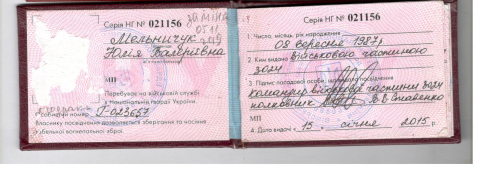 Серія НГ № 021156
Мельничук
Юлія Валеріївна
МП
Перебуває на військовій службі
в Національній гвардії України
Особистий номер Г-023657
Власнику посвідчення дозволяється зберігання та носіння
табельної вогнепальної зброї
Серія НГ № 021156
1. Число, місяць, рік народження
08 вересня 1987р.
2. Ким видано військовою частиною
3024
3. Підпис посадової особи, що видала посвідчення
командир військової частини 3024
полковник
МП
4. Дата видачі « 15 » січня 2015 р.